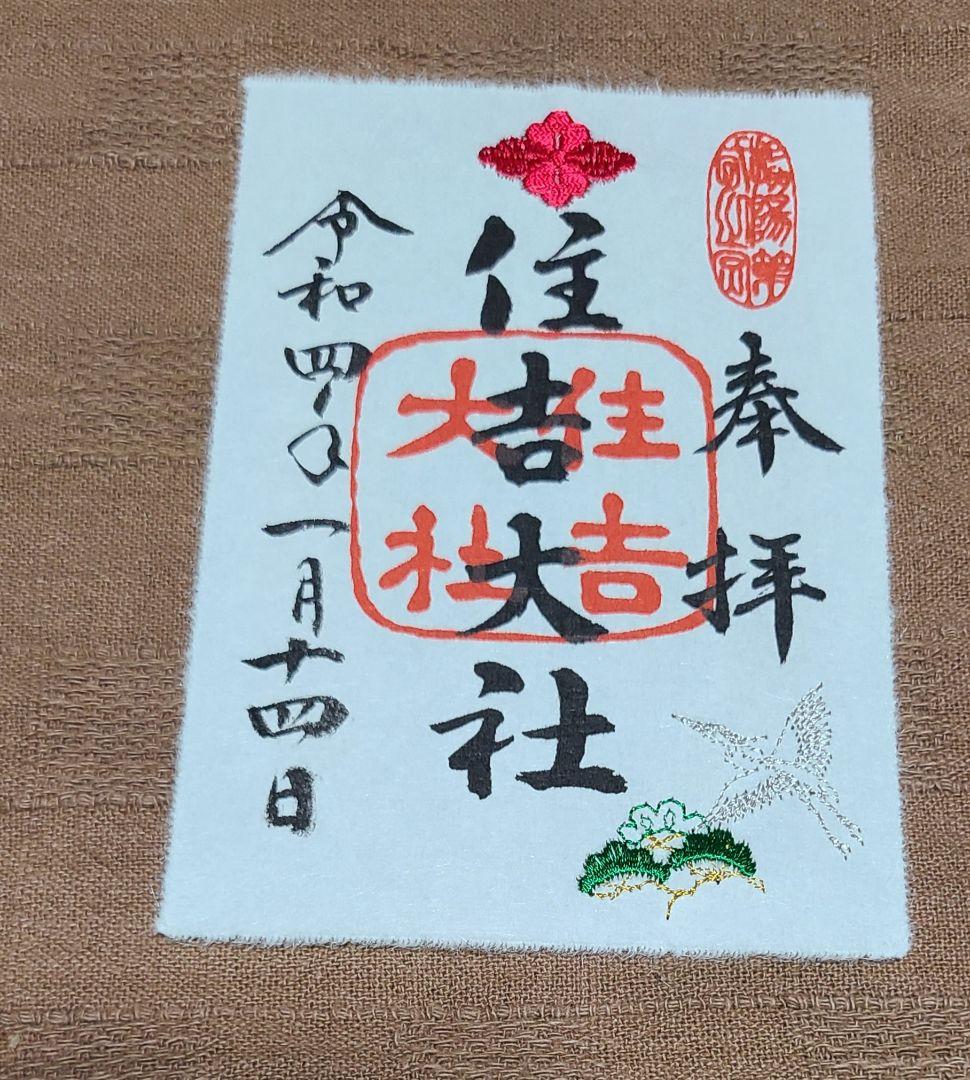 奉拝
住吉大社
住吉
大社
令和四年一月十四日